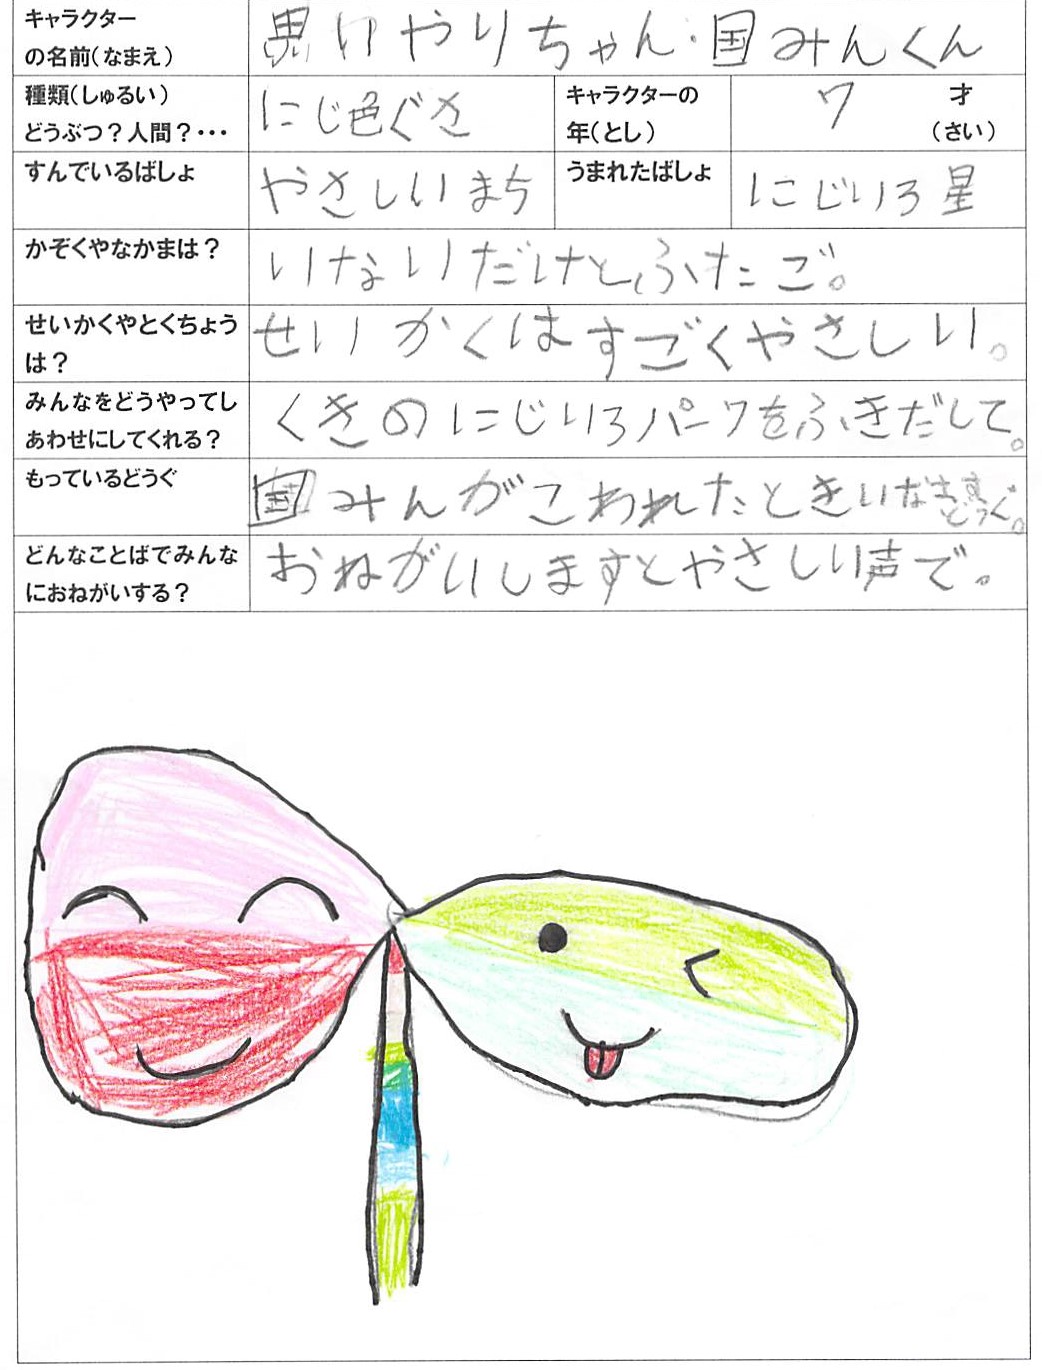 キャラクター
の名前(なまえ)
思いやりちゃん・国みんくん
種類(しゅるい)
どうぶつ?人間?・・・
にじ色ぐき
キャラクターの
年(とし)
7 才
(さい)
すんでいるばしょ
やさしいまち
うまれたばしょ
にじいろ星
かぞくやなかまは?
いないだけどふたご。
せいかくやとくちょう
は?
せいかくはすごくやさしい。
みんなをどうやってし
あわせにしてくれる?
くきのにじいろパーワをふきだして。
もっているどうぐ
国みんがこわれたときいなおすどうぐ。
どんなことばでみんな
におねがいする?
おねがいしますとやさしい声で。